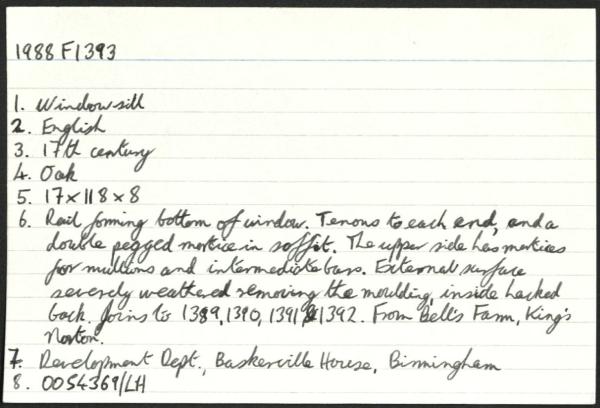 1988 F1393
1. Windowsill
2. English
3. 17th century
4. Oak
5. 17×118×8
6. Rail forming bottom of window. Tenons to each end, and a
double pegged mortice in soffit. The upper side has mortices
for mullions and intermediate bars. External surface
severely weathered removing the moulding, inside hacked
back. Joins to 1389, 1390, 1391 & 1392. From Bell's Farm, King's
Norton.
7. Development Dept., Baskerville House, Birmingham
8. 0054369/LH